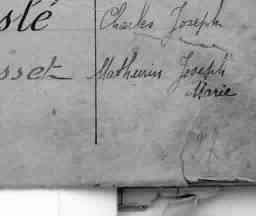 slé Charles Joseph
sset Mathurin Joseph
Marie